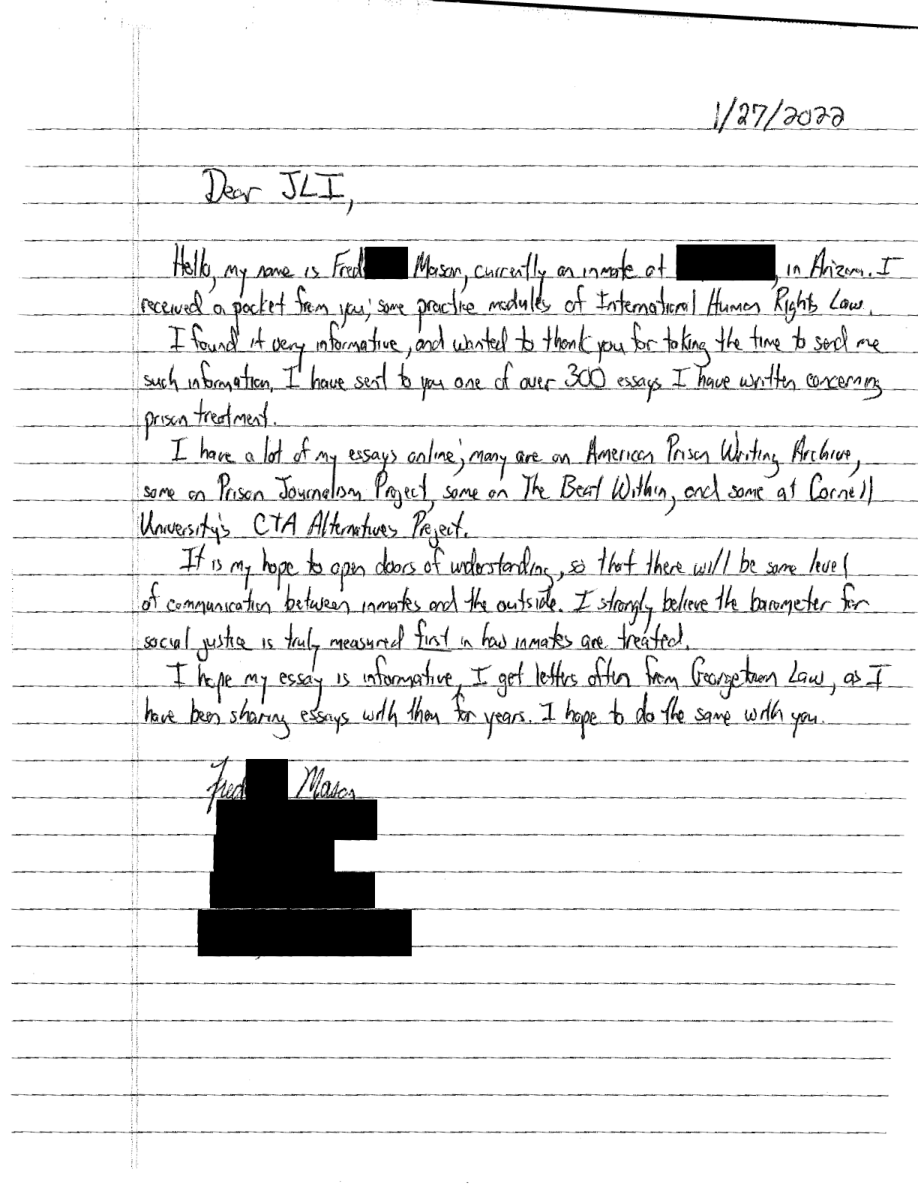 1/27/2022
Dear JLI,
Hello, my name is Fred Mason, currently an inmate at , in Arizona. I
received a packet from you; some practice modules of International Human Rights Law.
I found it very informative, and wanted to thank you for taking the time to send me
such information. I have sent to you one of over 300 essays I have written concerning
prison treatment.
I have a lot of my essays online; many are on American Prison Writing Archive,
some on Prison Journalism Project, some on The Beat Within, and some at Cornell
University's CTA Alternatives Project.
It is my hope to open doors of understanding, so that there will be some level
of communication between inmates and the outside. I strongly believe the barometer for
social justice is truly measured first in how inmates are treated.
I hope my essay is informative, I get letters often from Georgetown Law, as I
have been sharing essays with them for years. I hope to do the same with you.
Fred Mason